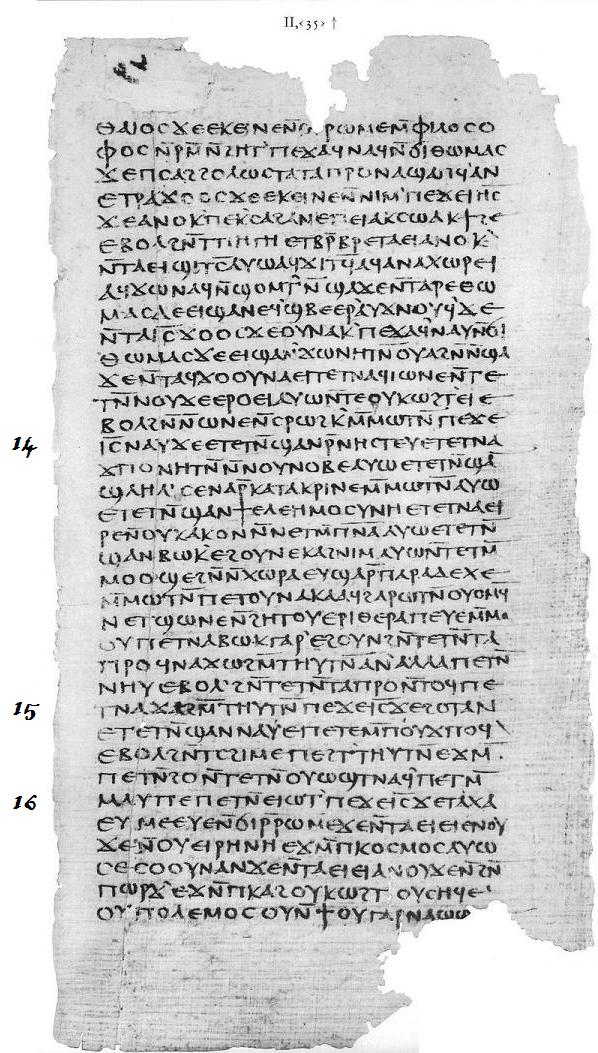 ⲑⲁⲓⲟⲥϫⲉⲉⲕⲉⲓⲛⲉⲛ̄ⲟⲩⲣⲱⲙⲉⲙ̄ⲫⲓⲗⲟⲥⲟ
ⲫⲟⲥⲛ̄ⲣⲙ̄ⲛ̄ϩⲏⲧ'ⲡⲉϫⲁϥⲛⲁϥⲛ̄ϭⲓⲑⲱⲙⲁⲥ
ϫⲉⲡⲥⲁϩϩⲟⲗⲱⲥⲧⲁⲧⲁⲡⲣⲟⲛⲁϣⲁⲡϥ'ⲁⲛ
ⲉⲧⲣⲁϫⲟⲟⲥϫⲉⲉⲕⲉⲓⲛⲉⲛ̄ⲛⲓⲙ'ⲡⲉϫⲉⲓⲏ̄ⲥ̄
ϫⲉⲁⲛⲟⲕ'ⲡⲉⲕ'ⲥⲁϩⲁⲛⲉⲡⲉⲓⲁⲕⲥⲱⲁⲕϯϩⲉ
ⲉⲃⲟⲗϩⲛ̄ⲧⲡⲏⲅⲏⲉⲧⲃⲣ̄ⲃⲣⲉⲧⲁⲉⲓⲁⲛⲟⲕ'
ⲛ̄ⲧⲁⲉⲓϣⲓⲧⲥ̄ⲁⲩⲱⲁϥϫⲓⲧϥ̄ⲁϥⲁⲛⲁⲭⲱⲣⲉⲓ
ⲁϥϫⲱⲛⲁϥⲛ̄ϣⲟⲙⲧ'ⲛ̄ϣⲁϫⲉⲛ̄ⲧⲁⲣⲉⲑⲱ
ⲙⲁⲥⲇⲉⲉⲓϣⲁⲛⲉϥ'ϣⲃⲉⲉⲣⲁⲩϫⲛⲟⲩϥ'ϫⲉ
ⲛ̄ⲧⲁⲓ̄ⲥ̄ϫⲟⲟⲥϫⲉⲟⲩⲛⲁⲕ'ⲡⲉϫⲁϥⲛⲁⲩⲛ̄ϭⲓ
ⲑⲱⲙⲁⲥϫⲉⲉⲓϣⲁⲛ'ϫⲱⲛⲏⲧⲛ̄ⲟⲩⲁϩⲛ̄ⲛ̄ϣⲁ
ϫⲉⲛ̄ⲧⲁϥϫⲟⲟⲩⲛⲁⲉⲓⲧⲉⲧⲛⲁϥⲓⲱⲛⲉⲛ̄ⲧⲉ
ⲧⲛ̄ⲛⲟⲩϫⲉⲉⲣⲟⲉⲓⲁⲩⲱⲛ̄ⲧⲉⲟⲩⲕⲱϩⲧ'ⲉⲓⲉ
ⲃⲟⲗϩⲛ̄ⲛ̄ⲱⲛⲉⲛ̄ⲥⲣⲱϩⲕ'ⲙ̄ⲙⲱⲧⲛ̄ⲡⲉϫⲉ
ⲓ̄ⲥ̄ⲛⲁⲩϫⲉⲉⲧⲉⲧⲛ̄ϣⲁⲛⲣ̄ⲛⲏⲥⲧⲉⲩⲉⲧⲉⲧⲛⲁ
ϫⲡⲟⲛⲏⲧⲛ̄ⲛ̄ⲛⲟⲩⲛⲟⲃⲉⲁⲩⲱⲉⲧⲉⲧⲛ̄ϣⲁ
ϣⲗⲏⲗ'ⲥⲉⲛⲁⲣ̄ⲕⲁⲧⲁⲕⲣⲓⲛⲉⲙ̄ⲙⲱⲧⲛ̄ⲁⲩⲱ
ⲉⲧⲉⲧⲛ̄ϣⲁⲛϯⲉⲗⲉⲏⲙⲟⲥⲩⲛⲏⲉⲧⲉⲧⲛⲁⲉⲓ
ⲣⲉⲛ̄ⲟⲩⲕⲁⲕⲟⲛⲛ̄ⲛⲉⲧⲙ̄ⲡⲛ̄ⲁ̄ⲁⲩⲱⲉⲧⲉⲧⲛ̄
ϣⲁⲛⲃⲱⲕ'ⲉϩⲟⲩⲛⲉⲕⲁϩⲛⲓⲙⲁⲩⲱⲛ̄ⲧⲉⲧⲙ̄
ⲙⲟⲟϣⲉϩⲛ̄ⲛ̄ⲭⲱⲣⲁⲉⲩϣⲁⲣ̄ⲡⲁⲣⲁⲇⲉⲭⲉ
ⲙ̄ⲙⲱⲧⲛ̄ⲡⲉⲧⲟⲩⲛⲁⲕⲁⲁϥϩⲁⲣⲱⲧⲛ̄ⲟⲩⲟⲙϥ
ⲛⲉⲧϣⲱⲛⲉⲛ̄ϩⲏⲧⲟⲩⲉⲣⲓⲑⲉⲣⲁⲡⲉⲩⲉⲙ̄ⲙⲟ
ⲟⲩⲡⲉⲧⲛⲁⲃⲱⲕⲅⲁⲣ'ⲉϩⲟⲩⲛϩⲛ̄ⲧⲉⲧⲛ̄ⲧⲁ
ⲡⲣⲟϥⲛⲁϫⲱϩⲙ̄ⲧⲏⲩⲧⲛ̄ⲁⲛ'ⲁⲗⲗⲁⲡⲉⲧⲛ̄
ⲛⲏⲩⲉⲃⲟⲗ'ϩⲛ̄ⲧⲉⲧⲛ̄ⲧⲁⲡⲣⲟⲛ̄ⲧⲟϥⲡⲉ
ⲧⲛⲁϫⲁϩⲙ̄ⲧⲏⲩⲧⲛ̄ⲡⲉϫⲉⲓ̄ⲥ̄ϫⲉϩⲟⲧⲁⲛ
ⲉⲧⲉⲧⲛ̄ϣⲁⲛⲛⲁⲩⲉⲡⲉⲧⲉⲙ̄ⲡⲟⲩϫⲡⲟϥ'
ⲉⲃⲟⲗϩⲛ̄ⲧⲥϩⲓⲙⲉⲡⲉϩⲧ'ⲧⲏⲩⲧⲛ̄ⲉϫⲙ̄
ⲡⲉⲧⲛ̄ϩⲟⲛ̄ⲧⲉⲧⲛ̄ⲟⲩⲱϣⲧⲛⲁϥ'ⲡⲉⲧⲙ̄
ⲙⲁⲩⲡⲉⲡⲉⲧⲛ̄ⲉⲓⲱⲧ'ⲡⲉϫⲉⲓ̄ⲥ̄ϫⲉⲧⲁⲭⲁ
ⲉⲩⲙⲉⲉⲩⲉⲛ̄ϭⲓⲣ̄ⲣⲱⲙⲉϫⲉⲛ̄ⲧⲁⲉⲓⲉⲓⲉⲛⲟⲩ
ϫⲉⲛ̄ⲟⲩⲉⲓⲣⲏⲛⲏⲉϫⲙ̄ⲡⲕⲟⲥⲙⲟⲥⲁⲩⲱ
ⲥⲉⲥⲟⲟⲩⲛⲁⲛϫⲉⲛ̄ⲧⲁⲉⲓⲉⲓⲁⲛⲟⲩϫⲉⲛ̄ϩⲛ̄
ⲡⲱⲣϫ'ⲉϫⲛ̄ⲡⲕⲁϩⲟⲩⲕⲱϩⲧ'ⲟⲩⲥⲏϥⲉ
ⲟⲩⲡⲟⲗⲉⲙⲟⲥⲟⲩⲛ̄ϯⲟⲩⲅⲁⲣⲛⲁϣⲱ
II,‹35› ↑
14
15
16